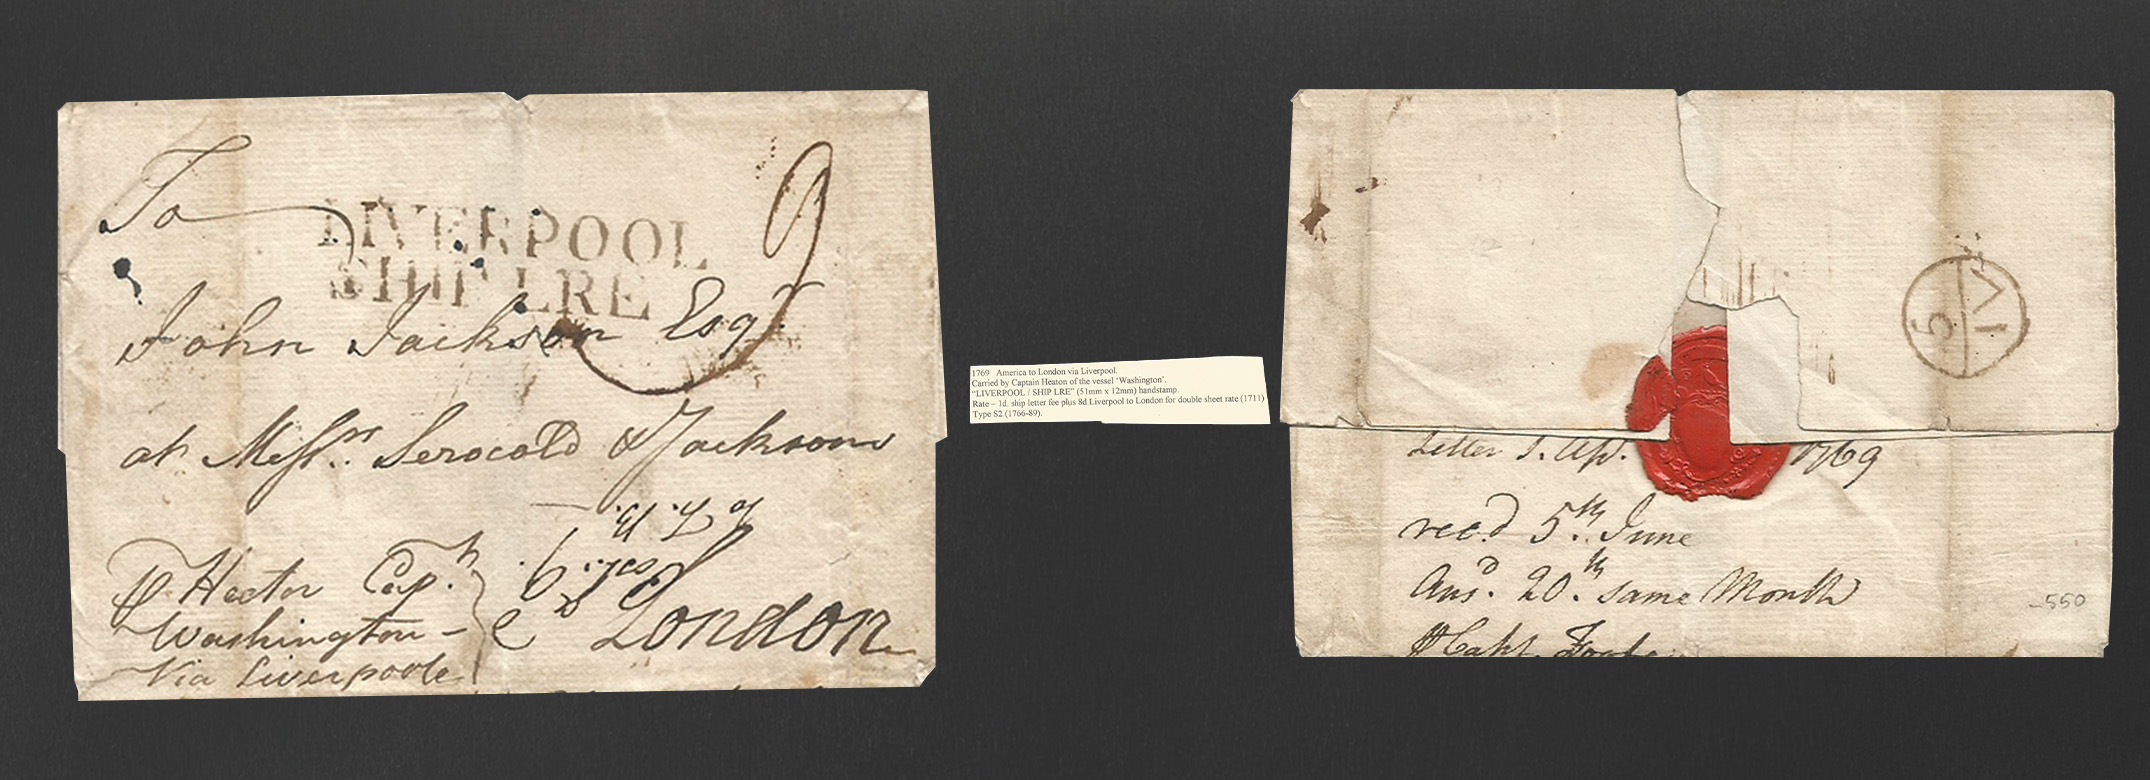 To
LIVERPOOL
SHIP LRE
9
John Jackson Esqr
at Messrs. Serocold & Jackson
London
⅌ Hector Capt.
Washington –
Via Liverpoole
1769 America to London via Liverpool.
Carried by Captain Heaton of the vessel 'Washington'.
"LIVERPOOL / SHIP LRE" (51mm x 12mm) handstamp.
Rate – 1d. ship letter fee plus 8d Liverpool to London for double sheet rate (1711)
Type S2 (1766-89).
5
IV
Letter 1. Ap. 1769
recd 5th. June
Ansd. 20th. same Month
⅌ Capt.
550